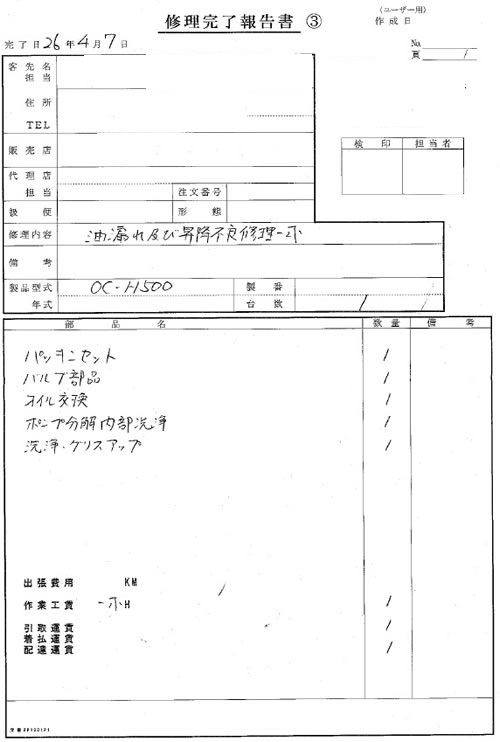 修理完了報告書 ③
(ユーザー用)
作成日
完了日 26年4月7日
No.
頁 1/
客先名
担当
住所
TEL
販売店
代理店
担当 注文番号
扱便 形態
検印 担当者
修理内容 油漏れ及び昇降不良修理一式
備考
製品型式 OC-H500 製番
年式 台数 1/
部品名 数量 備考
パッキンセット 1
バルブ部品 1
オイル交換 1
ポンプ分解内部洗浄 1
洗浄・グリスアップ 1
出張費用 KM
作業工賃 一式H 1
引取運賃 1
着払運賃
配達運賃 1